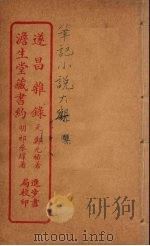 筆記小說大觀
集
遂昌雜錄 元鄭元祐著
澹生堂藏書約 明祁承㸁著
進步書
局校印